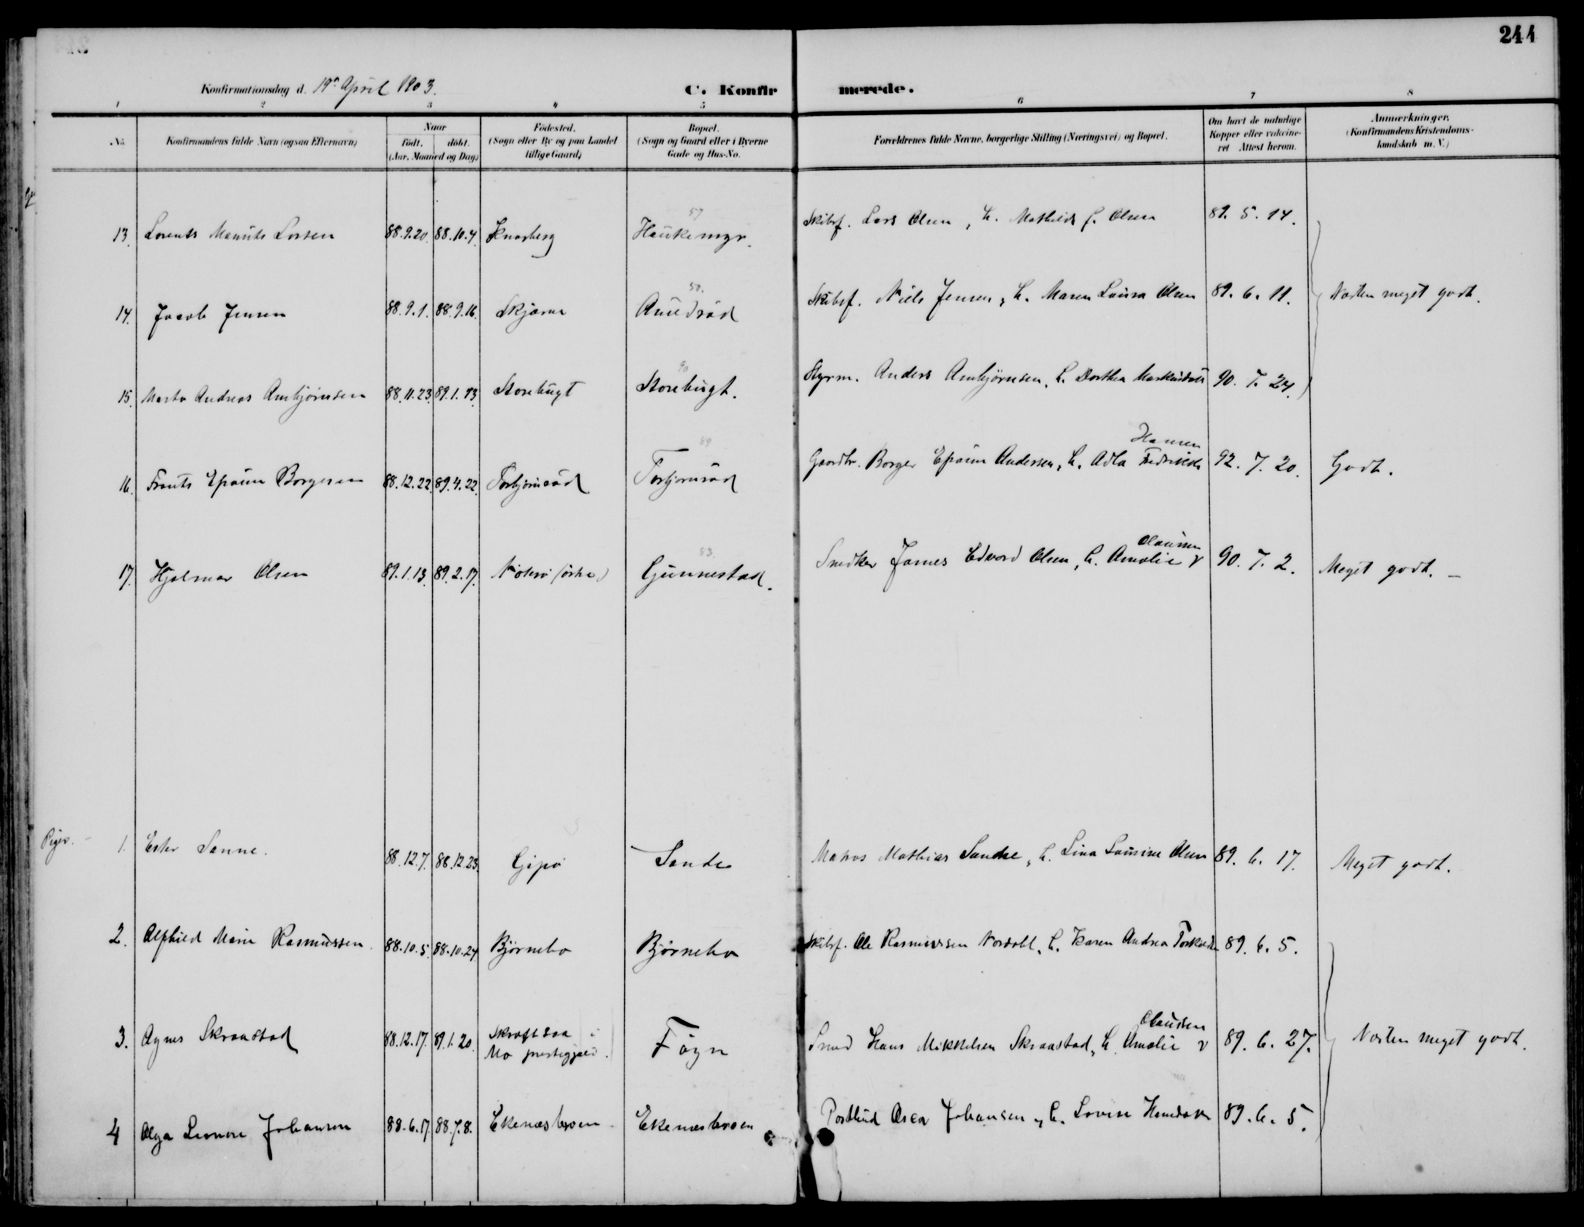 244
Konfirmationsdag d. 19de April 1903.
C. Konfirmerede.
1 2 3 4 5 6 7 8
No.
Konfirmandens fulde Navn (ogsaa Efternavn)
Naar
født. døbt.
(Aar, Maaned og Dag)
Fødested.
(Sogn eller By og paa Landet
tillige Gaard)
Bopæl.
(Sogn og Gaard eller i Byerne
Gade og Hus-No.
Forældrenes fulde Navne, borgerlige Stilling (Næringsvei) og Bopæl.
Om havt de naturlige
Kopper eller vaksine-
ret Attest herom.
Anmærkninger.
(Konfirmandens Kristendoms-
kundskab m. V.)
57
13. Lorents Larsen 88.9.20. 88.10.7. Knarberg Haukemyr. Skibsf. Lars Olsen, h. Mathilde f. Olsen 89. 5. 14.
50.
14. Jacob Jensen 88.9.1. 88.9.16. Skjærue Skibsf. Niels Jensen, h. Maren Lovisa Olsen 89. 6. 11. Næsten meget godt.
15. Andreas Arnbjørnsen 88.11.23. 89.1.13. Storebugt Storebugt. Styrm. Anders Arnbjørnsen, h. Dorthea 90. 7. 24.
Hansen
16. Frants Efraim Borgersen 88.12.22. 89.4.22. Torbjørnsrød Torbjørnsrød Gaardbr. Borger Efraim Andersen, h. Adla 92. 7. 20. Godt.
Clausen
17. Hjalmar Olsen 89.1.13. 89.2.17. Nøterø Gunnestad. Snedker James Edvard Olsen, h. Amalie 90. 7. 2. Meget godt. –
Piger. – 1. Ester Sanne. 88.12.7. 88.12.23. Gipø Sande Matros Mathias Sande, h. Lina Lovise Olsen 89. 6. 17. Meget godt.
2. Alfhild Marie Rasmussen. 88.10.5. 88.10.24. Bjørnebo Bjørnebo Skibsf. Ole Rasmussen Nordahl, h. Karen Andrea 89. 6. 5.
Clausen
3. Agnes Skraastad 88.12.17. 89.1.20. i
Mo præstegjeld. Föyn Smed Hans Mikkelsen Skraastad, h. Amalie 89. 6. 27. Næsten meget godt.
4 Olga Leonore Johansen 88.6.17. 88.7.8. Ekenæs Ekenæs Postbud Oscar Johansen, h. Lovise 89. 6. 5.